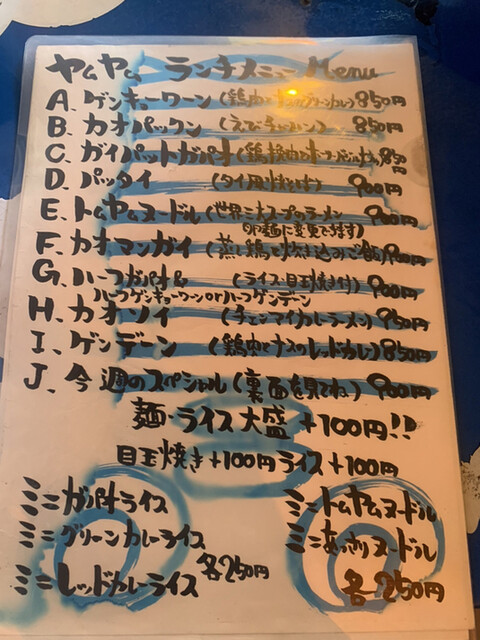 ヤムヤム ランチメニュー Menu
A、ゲンキョーワーン(鶏肉とナスのグリーンカレー)850円
B、カオパックン(えびチャーハン) 850円
C、ガイパットガパオ(鶏挽肉とホーリーバジル)850円
D、パッタイ (タイ風焼そば) 900円
E、トムヤムヌードル(世界三大スープのラーメン 900円
(卵麺に変更できます)
F、カオマンガイ(蒸し鶏と炊き込みご飯)900円
G、ハーフガパオ& (ライス・目玉焼き付) 900円
ハーフゲンキョーワン orハーフゲンデーン
H、カオソイ (チェンマイカレーラーメン) 950円
I、ゲンデーン (鶏肉とナスのレッドカレー)850円
J、今週のスペシャル(裏面を見てね) 900円
麺・ライス大盛 +100円!!
目玉焼き+100円 ライス+100円
ミニガパオライス
ミニグリーンカレーライス
ミニレッドカレーライス 各250円
ミニトムヤムヌードル
ミニあっさりヌードル
各250円